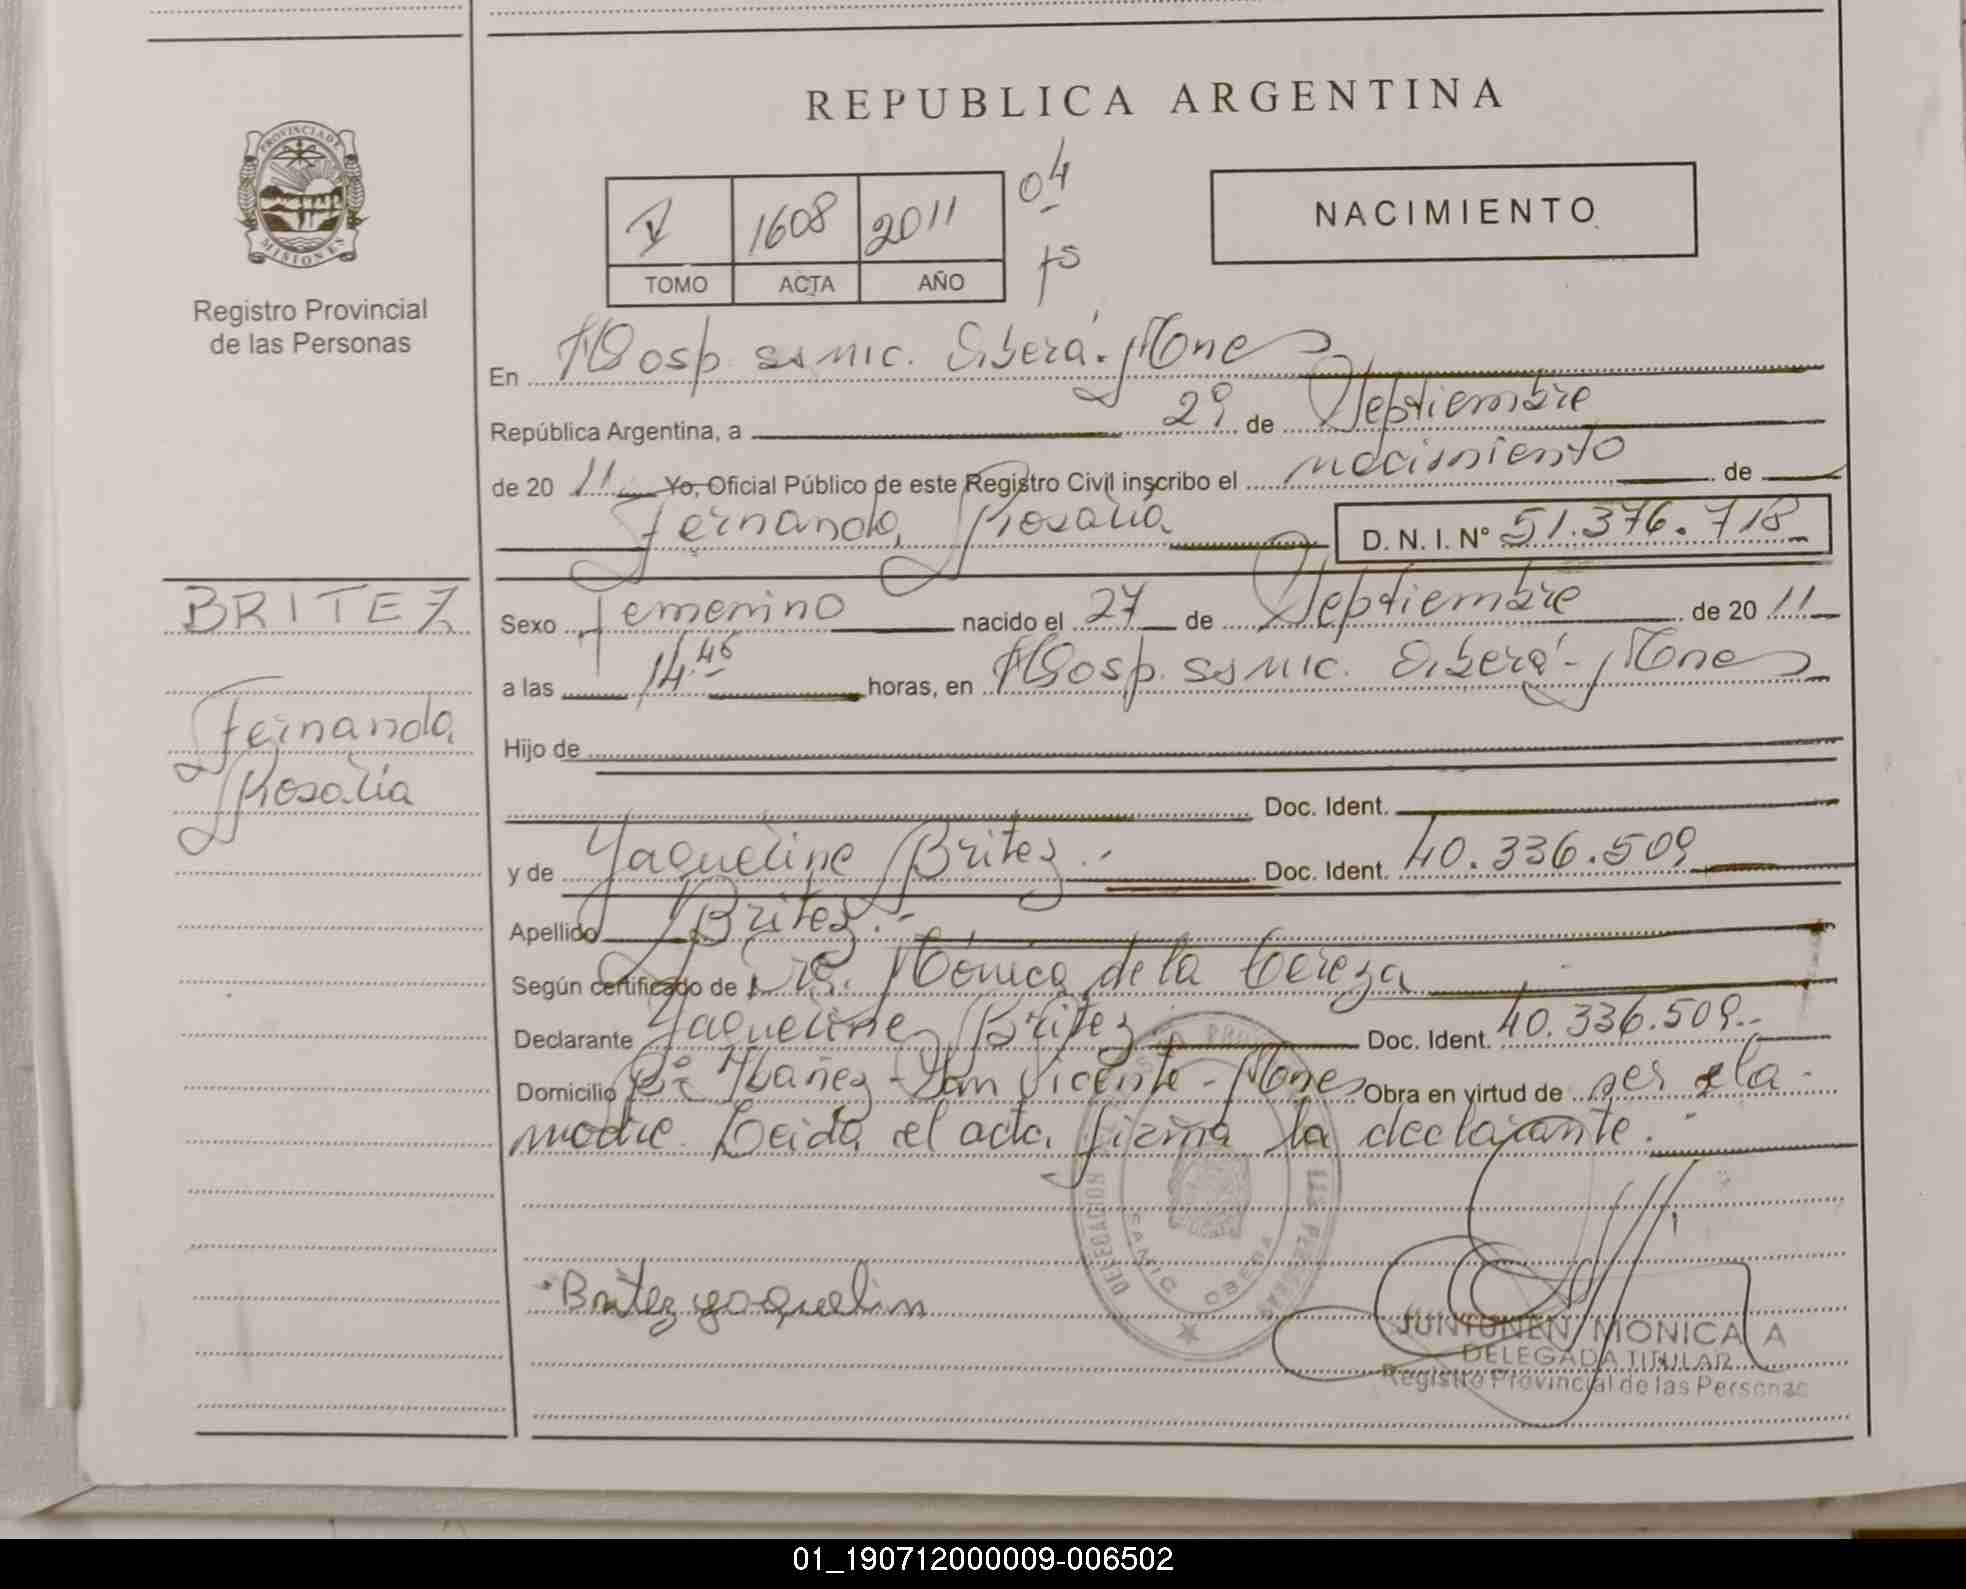 REPUBLICA ARGENTINA
PROVINCIA DE
MISIONES
Registro Provincial
de las Personas
V 1608 2011 04
TOMO ACTA AÑO
NACIMIENTO
En Hosp. ssmic. Oberá. Mnes
República Argentina, a 29 de Septiembre
de 20 11 Yo, Oficial Público de este Registro Civil inscribo el nacimiento de
Fernanda Rosalia D. N. I. N° 51.376.718
BRITEZ
Fernanda
Rosalia
Sexo femenino nacido el 27 de Septiembre de 20 11
a las 14.46 horas, en Hosp. ssmic. Oberá - Mnes
Hijo de
Doc. Ident.
y de Yaqueline Britez.- Doc. Ident. 40.336.509
Apellido Britez.-
Según certificado de Dra. Mónica de la
Declarante Yaqueline Britez Doc. Ident. 40.336.509.-
Domicilio Bº Ybañez - San Vicente - Mnes Obra en virtud de ser la
madre. Leida el acta, firma la declarante.
DELEGACION
SAMIC OBERA
Britez yaquelin
JUNTUNEN MONICA A
DELEGADA TITULAR
Registro Provincial de las Personas
01_190712000009-006502